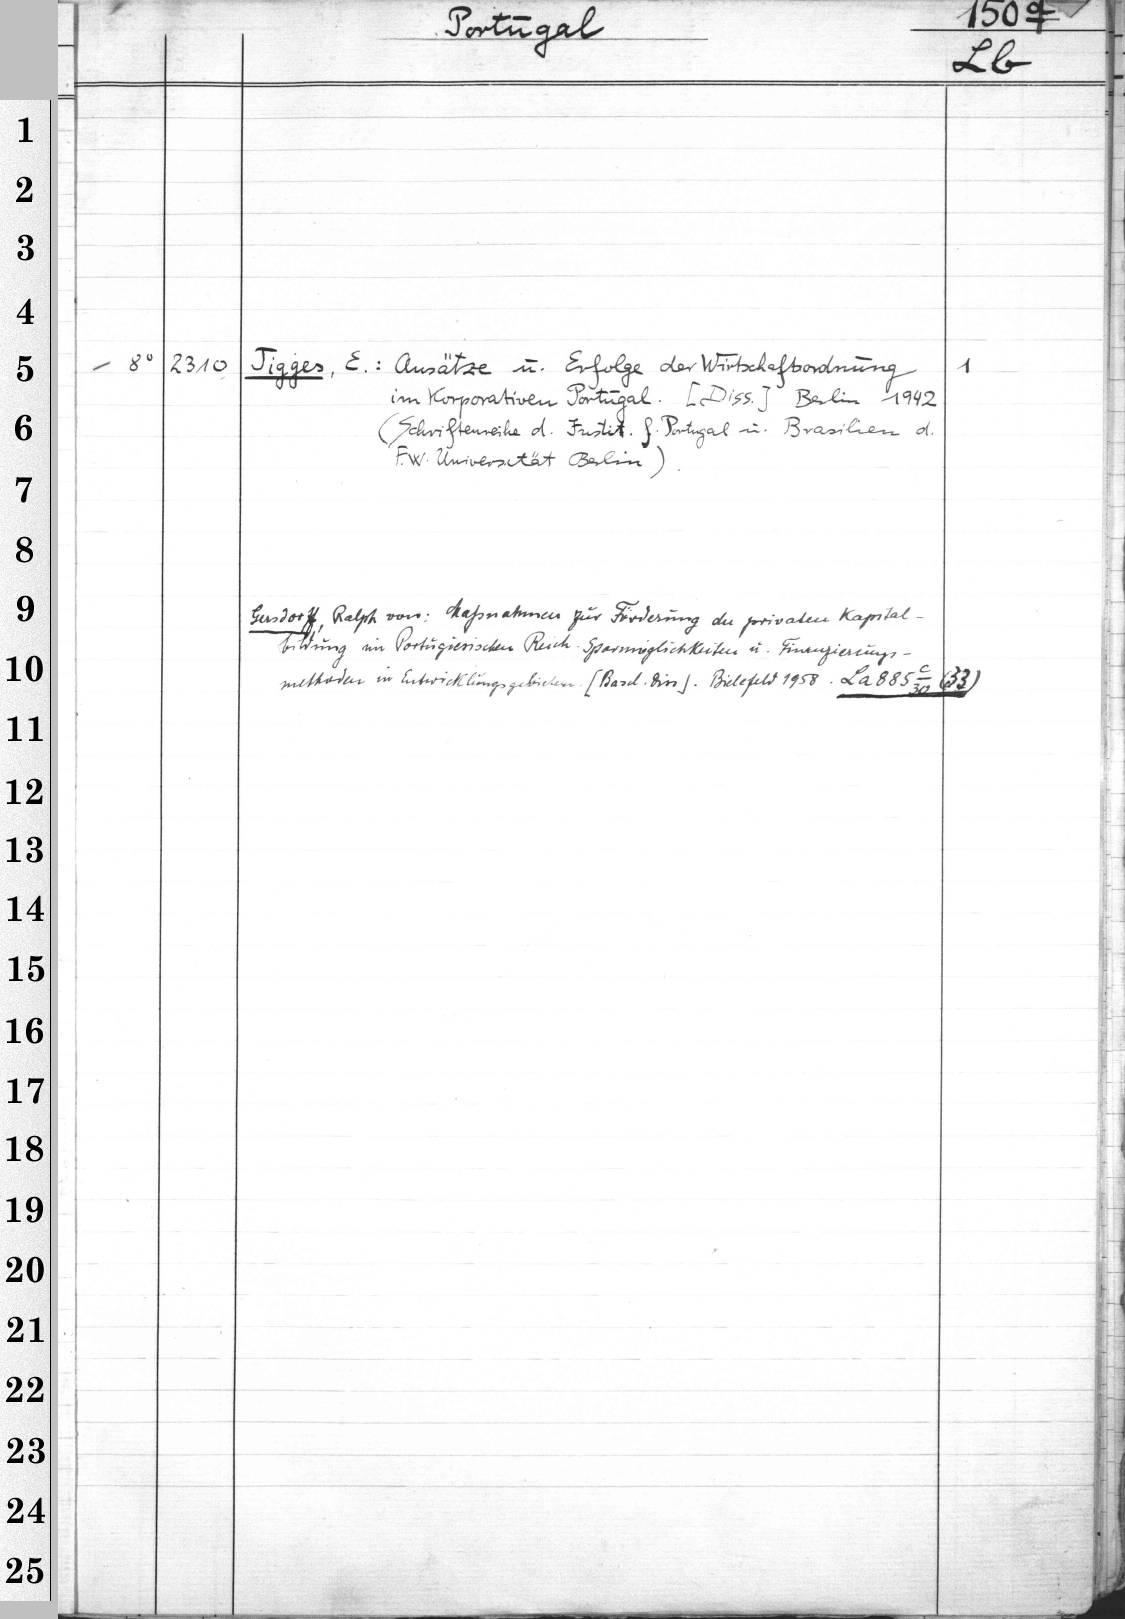 Portugal
150 q
Lb
1
2
3
4
5
6
7
8
9
10
11
12
13
14
15
16
17
18
19
20
21
22
23
24
25
– 8° 2310 Tigges, E.: Ansätze u. Erfolge der Wirtschaftsordnung 1
im Korporativen Portugal. [Diss.] Berlin 1942
(Schriftenreihe d. Instit. f. Portugal u. Brasilien d.
F.W. Universität Berlin).
Gersdorff, Ralph von: Maßnahmen zur Förderung der privaten Kapital-
bildung im Portugiesischen Reich. Sparmöglichkeiten u. Finanzierungs-
methoden in Entwicklungsgebieten. [Basel. Diss]. Bielefeld 1958. La 885 c/30 (33)